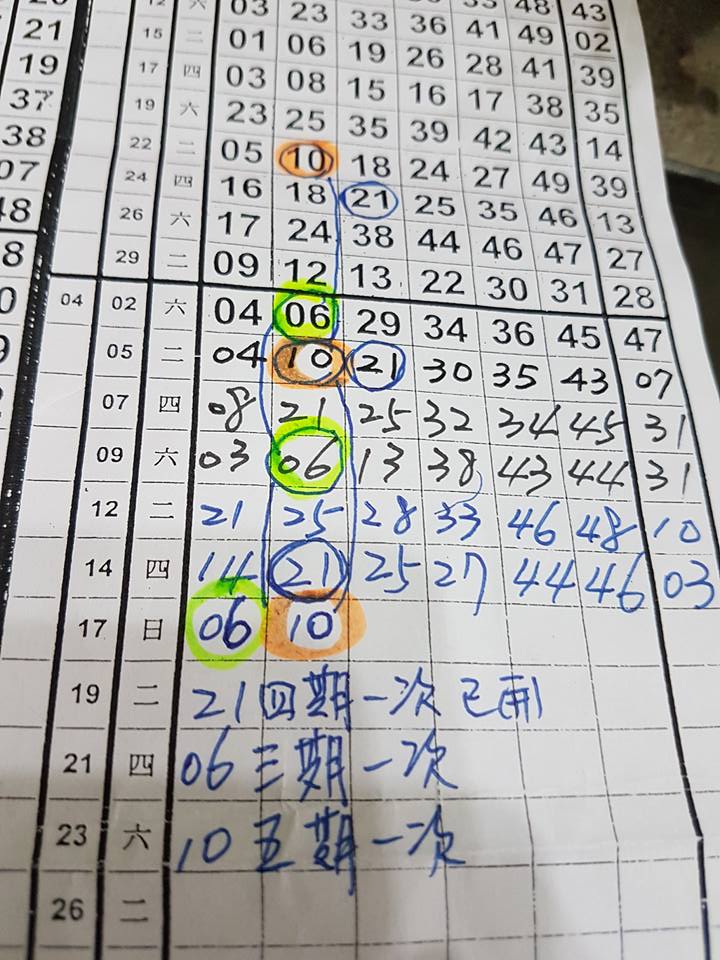 03 23 33 36 41 49 43
21 15 二 01 06 19 26 28 41 02
19 17 四 03 08 15 16 17 38 39
37 19 六 23 25 35 39 42 43 35
38 22 二 05 10 18 24 27 49 14
07 24 四 16 18 21 25 35 46 39
26 六 17 24 38 44 46 47 13
29 二 09 12 13 22 30 31 27
04 02 六 04 06 29 34 36 45 28
05 二 04 10 21 30 35 43 47
07 四 08 21 25 32 34 45 07
09 六 03 06 13 38 43 44 31
31
12 二 21 25 28 33 46 48 10
14 四 14 21 25 27 44 46 03
17 日 06 10
19 二 21四期一次已開
21 四 06三期一次
23 六 10五期一次
26 二